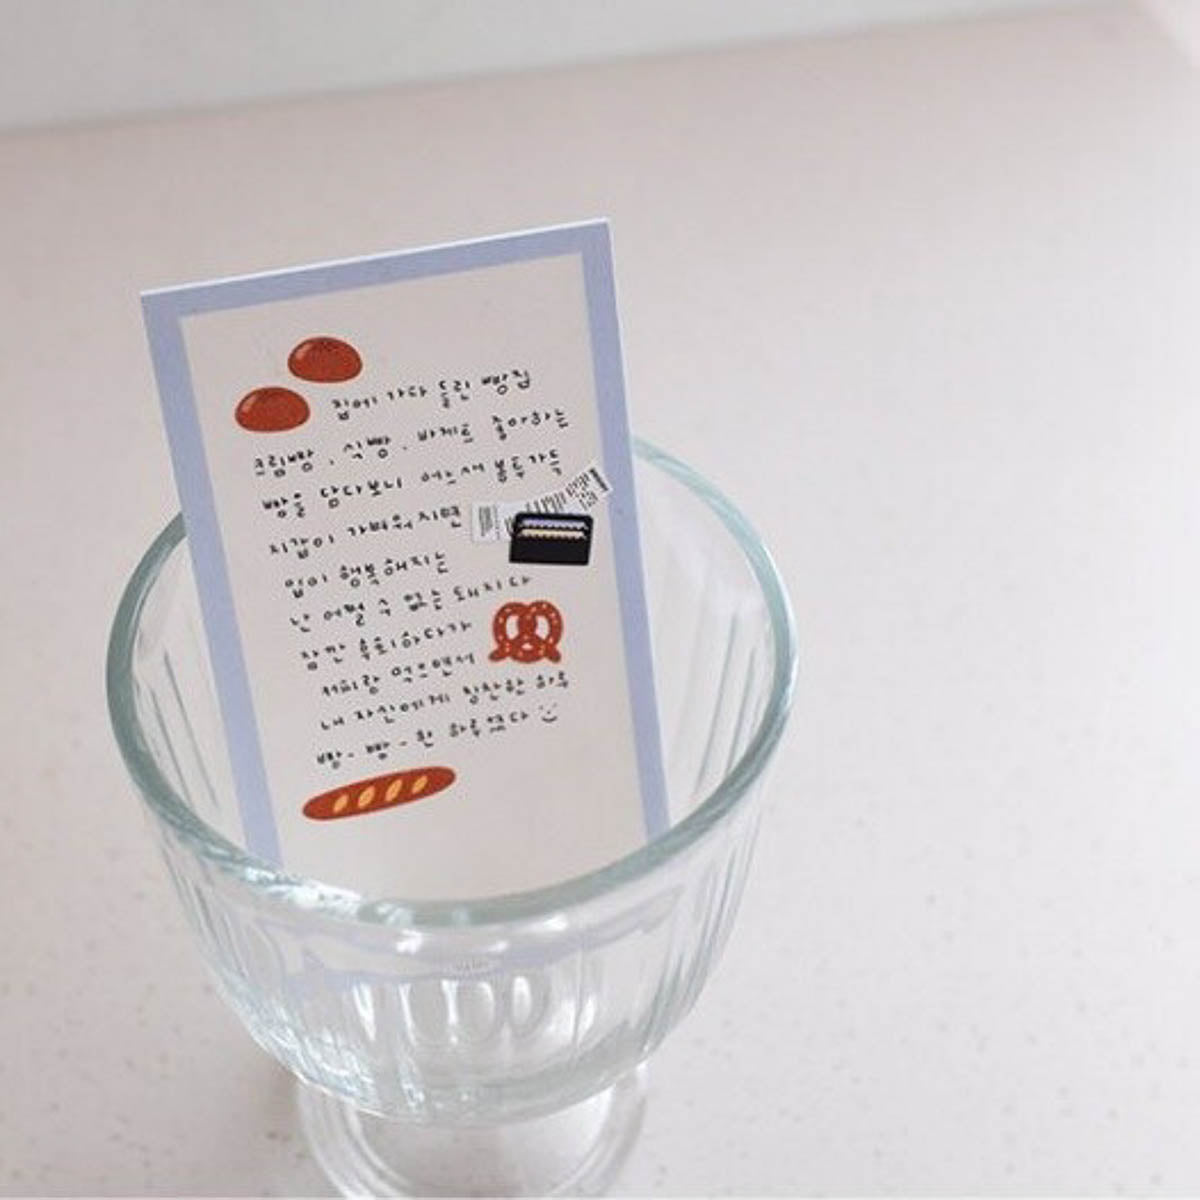 집에 가다 들린 빵집
크림빵, 식빵, 바게트 좋아하는
빵을 담다보니 어느새 봉투가득
지갑이 가벼워지면
입이 행복해지는
난 어쩔 수 없는 돼지다
잠깐 후회하다가
커피랑 먹으면서
내 자신에게 칭찬한 하루
빵-빵-한 하루였다